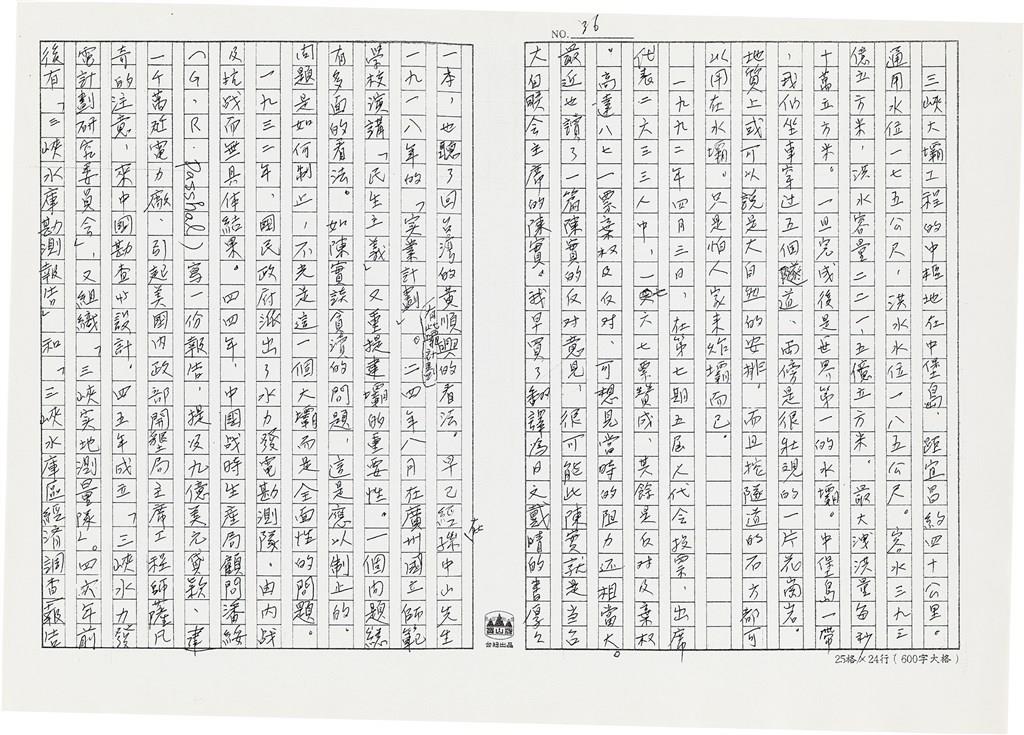 NO. 36
三峽大壩工程的中樞地在中堡島，距宜昌約四十公里。
通用水位一七五公尺，洪水水位一八五公尺。容水三九三
億五方米，洪水容量二二一，五億五方米。最大洩洪量每秒
十萬五方米。一旦完成後是世界第一的水壩。中堡島一帶
，我们坐車穿过五個隧道、兩傍是很壯观的一片花崗岩。
地質上或可以說是大自然的安排。而且挖隧道的石方都可
以用在水壩。只是怕人家來炸壩而已。
一九九二年四月三日，在第七期五屆人代会投票，出席
代表二六三三人中，一七六七票贊成，其餘是反对及棄权
。高達八七一票棄权及反对，可想見當時的阻力还相當大。
最近也讀了一篇陳實的反对意見，很可能此陳實就是当台
大自联会主席的陳實。我早買了翻譯為日文戴晴的書厚々
一本，也聽了回台灣的黄順興的看法。早已經孫中山先生在
一九一八年的「実業計劃」有此壩計劃。二四年八月在廣州國立師範
學校演講「民生主義」又重提建壩的重要性。一個問題総
有多面的看法。如陳實談貪瀆的問題，這是應以制止的。
問題是如何制止，不光是這一個大壩而是全面性的問題。
一九三二年，國民政府派出了水力發電勘測隊，由内战
及抗战而無具体結果。四四年，中國战時生産局顧問潘綏
（G．R．Passhal）寫一份報告，提及九億美元貸款、建
一千萬瓩電力廠。引起美國内政部開墾局主席工程師薩凡
奇的注意，來中國勘查与設計。四五年成立「三峽水力發
電計劃研究委員会」，又組織「三峽实地測量隊」。四六年前
後有「三峽水庫勘測報告」和「三峽水庫區經済調查報告
雪山牌
台社出品
25格×24行（600字大格）